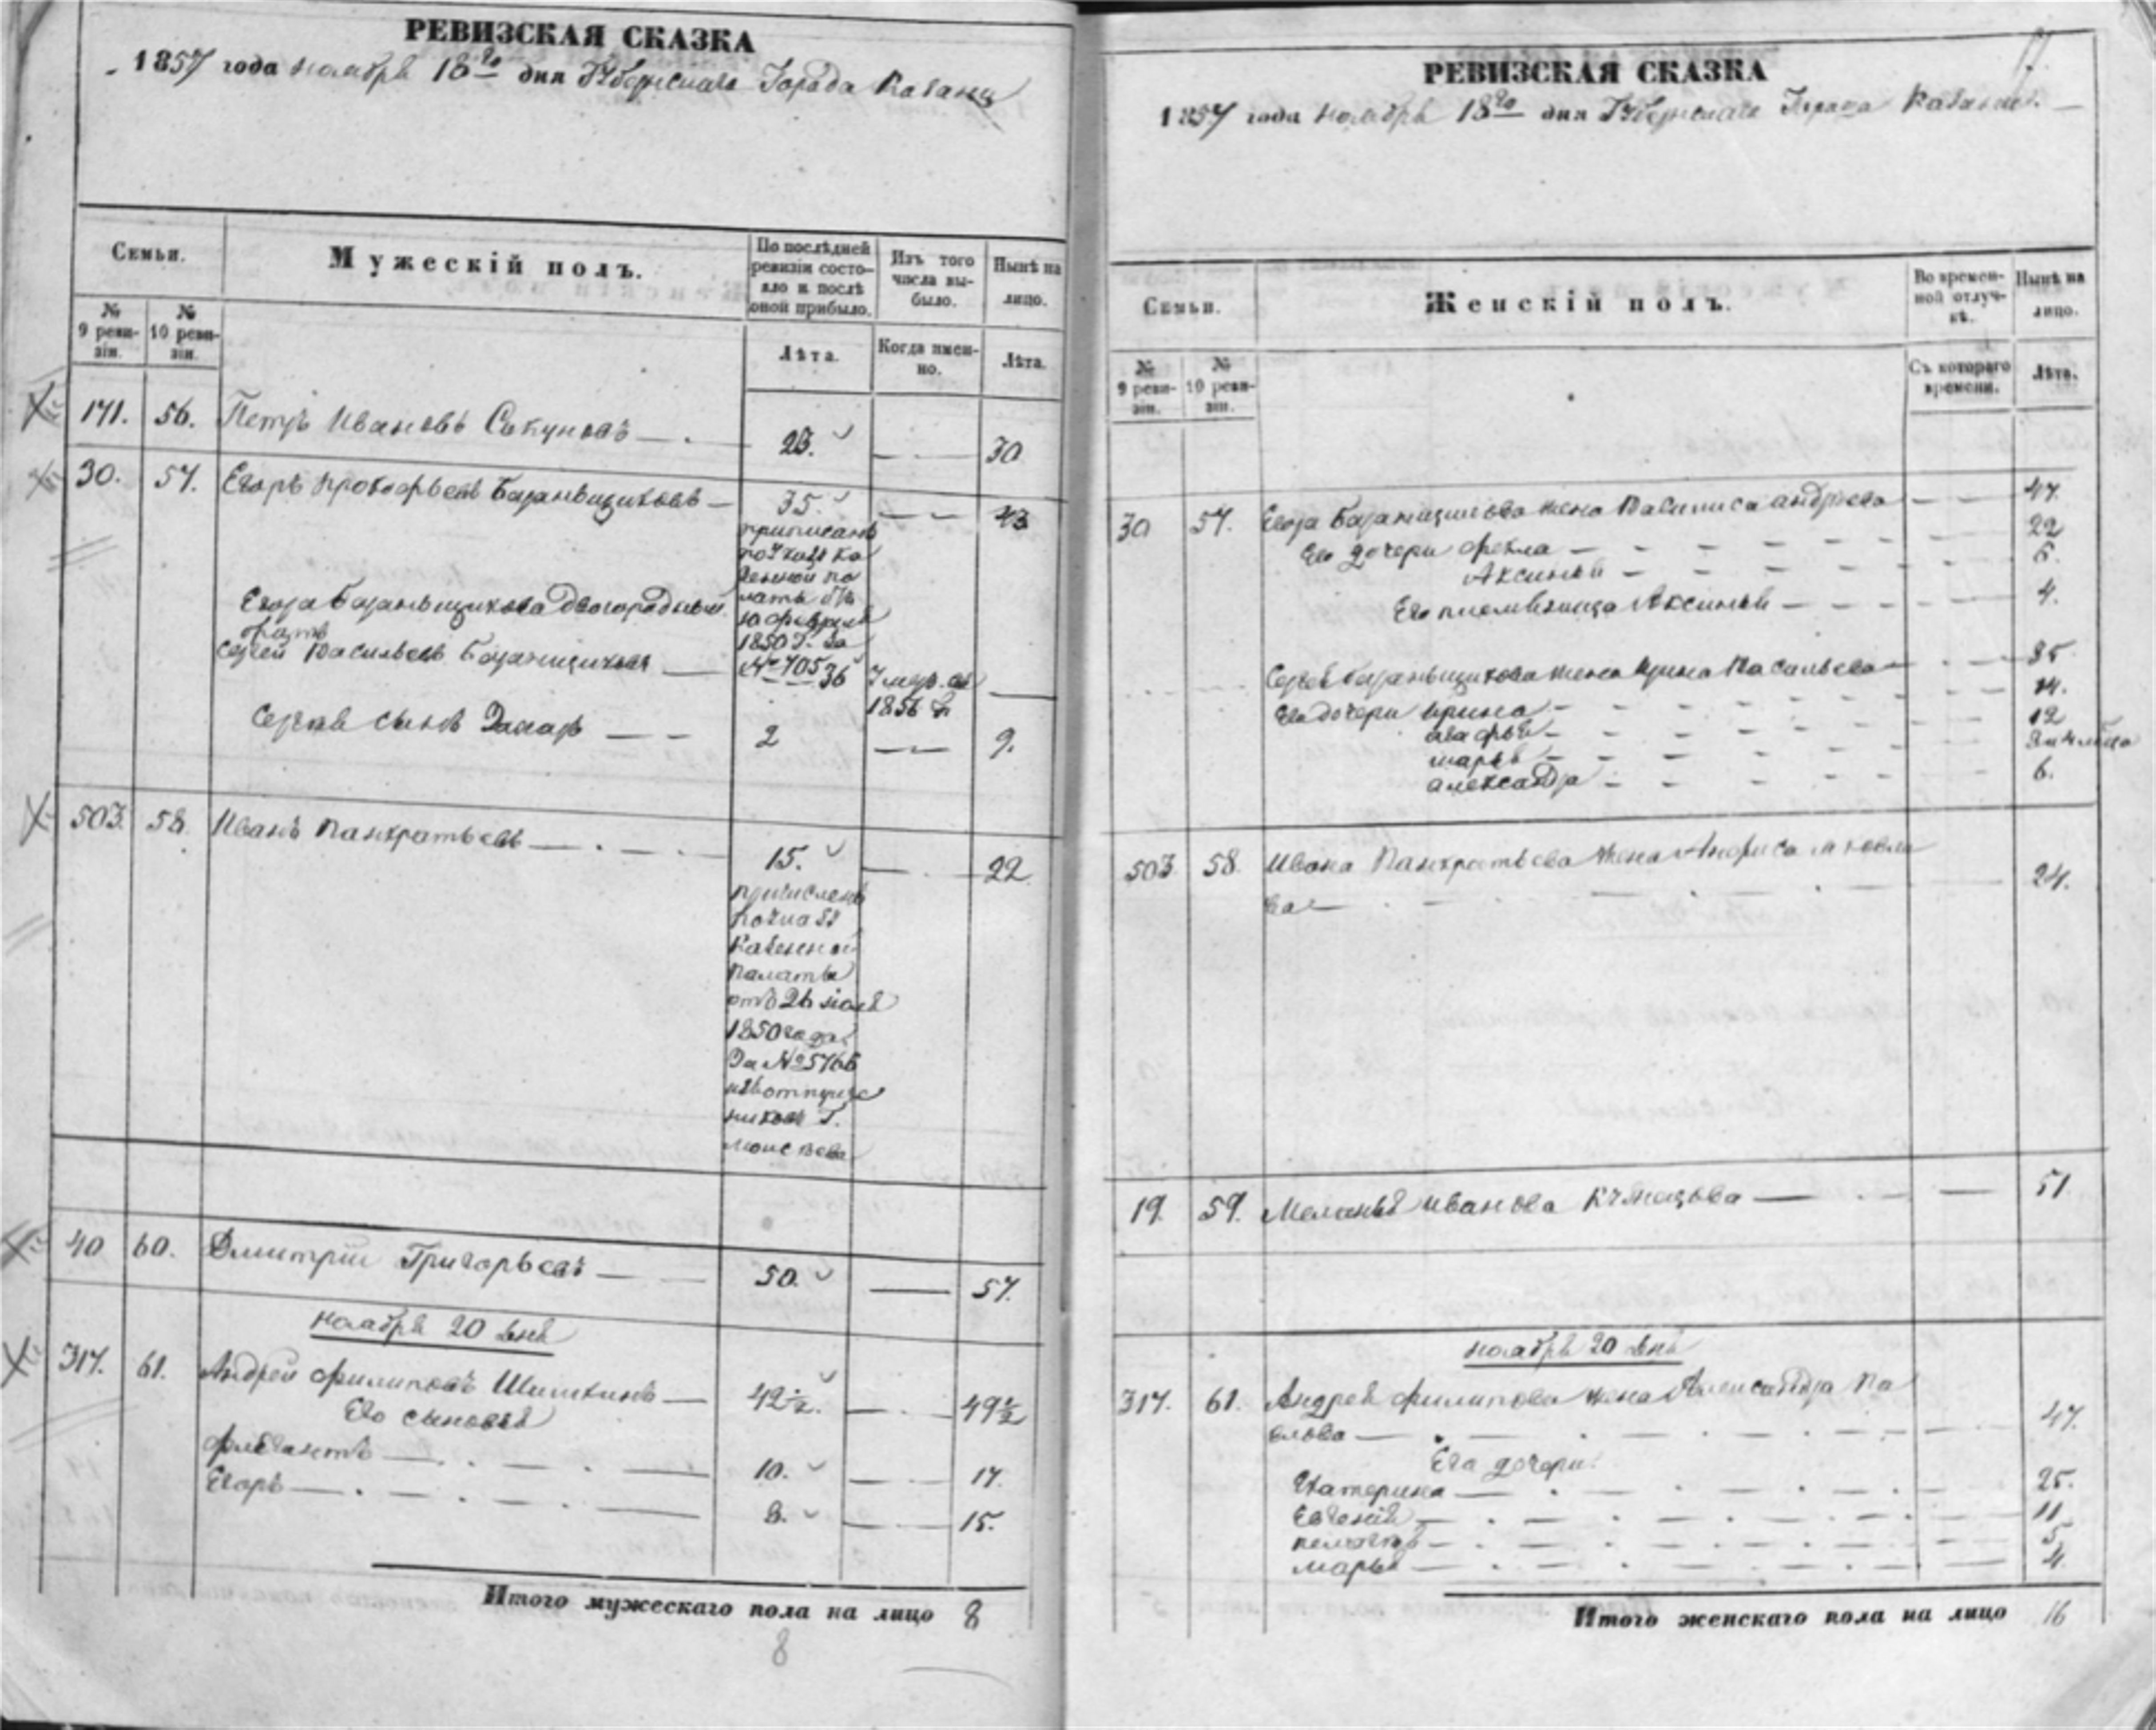 РЕВИЗСКАЯ СКАЗКА
1857 года ноября 18го дня Губернскаго Города Казани
Семьи.
Мужескій полъ.
По послѣдней ревизіи состо-
яло и послѣ
оной прибыло.
Изъ того
числа вы-
было.
Нынѣ на
лицо.
№
9 реви-
зіи.
№
10 реви-
зіи.
Лѣта.
Когда имен-
но.
Лѣта.
171. 56. Петръ Ивановъ Сакуновъ 23. 30
30. 57. Егоръ Прокофьевъ Базанщиковъ 35. 43
приписанъ
по указу Ка
зенной па
латы
февраля
1850 г. за
№ 705
Егора Базанщикова двоюродный
братъ
Сергей Васильевъ Базанщиковъ 36 Умер. въ
1856 г.
Сергея сынъ Захаръ 2 9.
503. 58. Иванъ Панкратьевъ 15. 22.
причисленъ
по указу
Казенной
Палаты
отъ 26 июля
1850 года
За № 5766
изъ отпущен
никовъ Г.
40 60. Дмитрій Григорьевъ 50. 57.
Ноября 20 дня
317. 61. Андрей Филиповъ Шишкинъ 42½. 49½
Его сыновья
Флегантъ 10. 17.
Егоръ 8. 15.
Итого мужескаго пола на лицо 8
8
17.
РЕВИЗСКАЯ СКАЗКА
1857 года Ноября 18го дня Губернскаго Города Казани.
Семьи.
Женскій полъ.
Во времен-
ной отлуч-
кѣ.
Нынѣ на
лицо.
№
9 реви-
зіи.
№
10 реви-
зіи.
Съ котораго
времени.
Лѣта.
30 57. Егора Базанщикова жена Василиса Андреева 47.
Его дочери Фекла 22
Аксинья 6.
Его племянница Аксинья 4.
Сергея Базанщикова жена Ирина Васильева 35
Его дочери Ирина 14.
12
Марья
Александра 6.
503 58. Ивана Панкратьева жена Анфиса Яковле
ва 24.
19. 59. Меланья Иванова Кузнецова 51
Ноября 20 дня
317. 61. Андрея Филипова жена Александра Па
влова 47.
Его дочери
Катерина 25.
Евгенія 11
Пелагея 5
Марья 4.
Итого женскаго пола на лицо 16